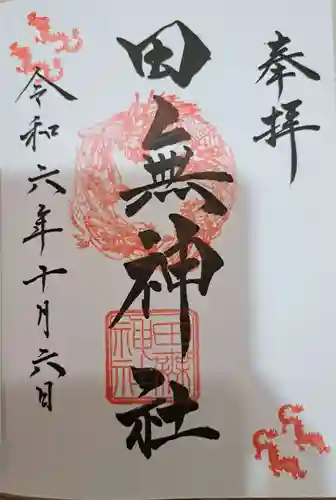 奉拝
田無神社
田無神社
令和六年十月六日